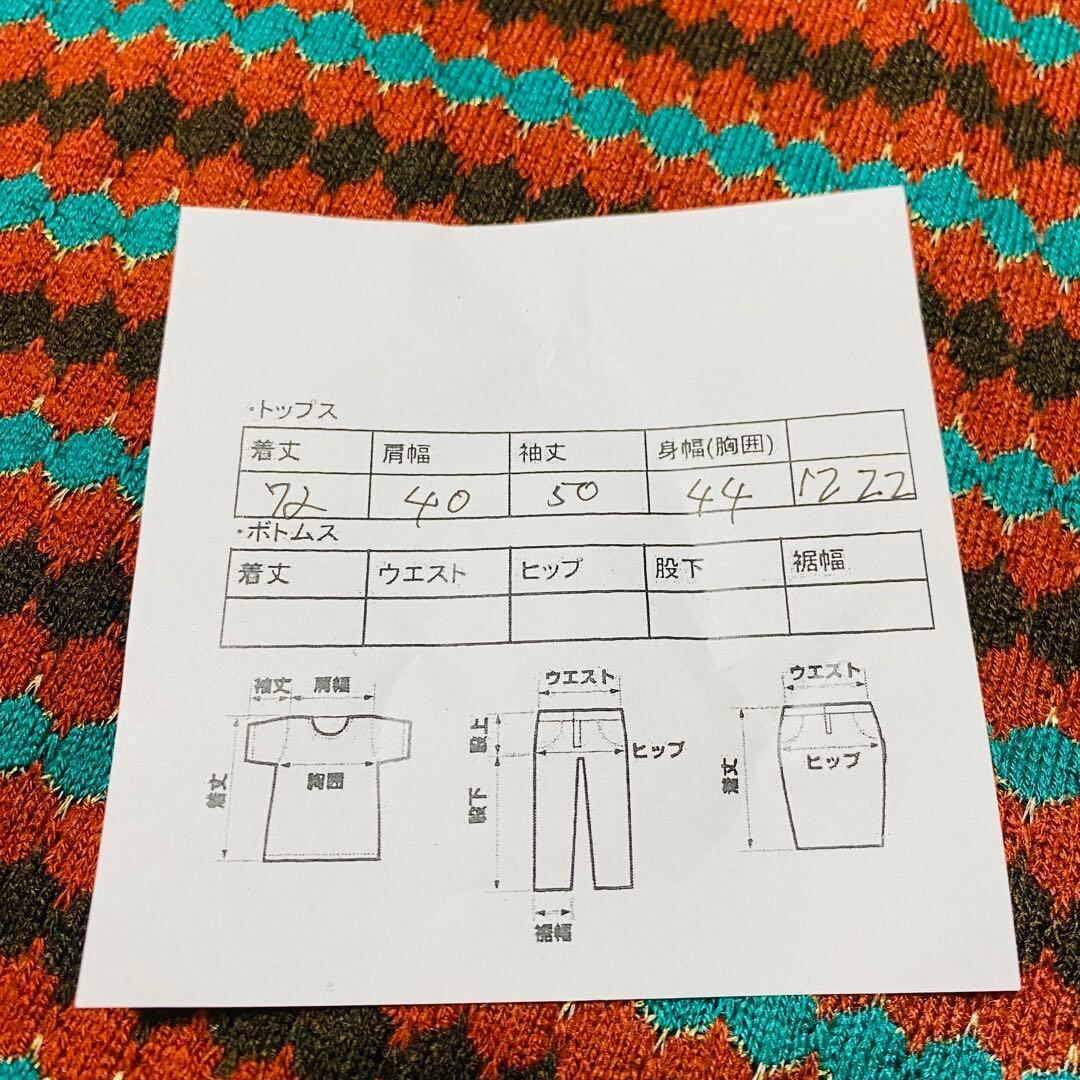 ・トップス
着丈 肩幅 袖丈 身幅(胸囲)
72 40 50 44 1222
・ボトムス
着丈 ウエスト ヒップ 股下 裾幅
袖丈 肩幅
着丈
胸囲
ウエスト
股上
ヒップ
股下
裾幅
ウエスト
着丈
ヒップ